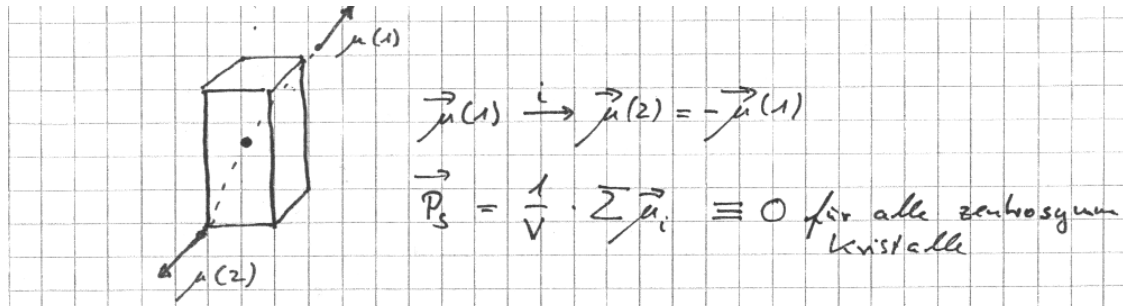 μ⃗(1)
μ⃗(1) →ⁱ μ⃗(2) = -μ⃗(1)
P⃗s = 1/V · Σ μ⃗i ≡ 0 für alle zentrosymm
Kristalle
μ(2)